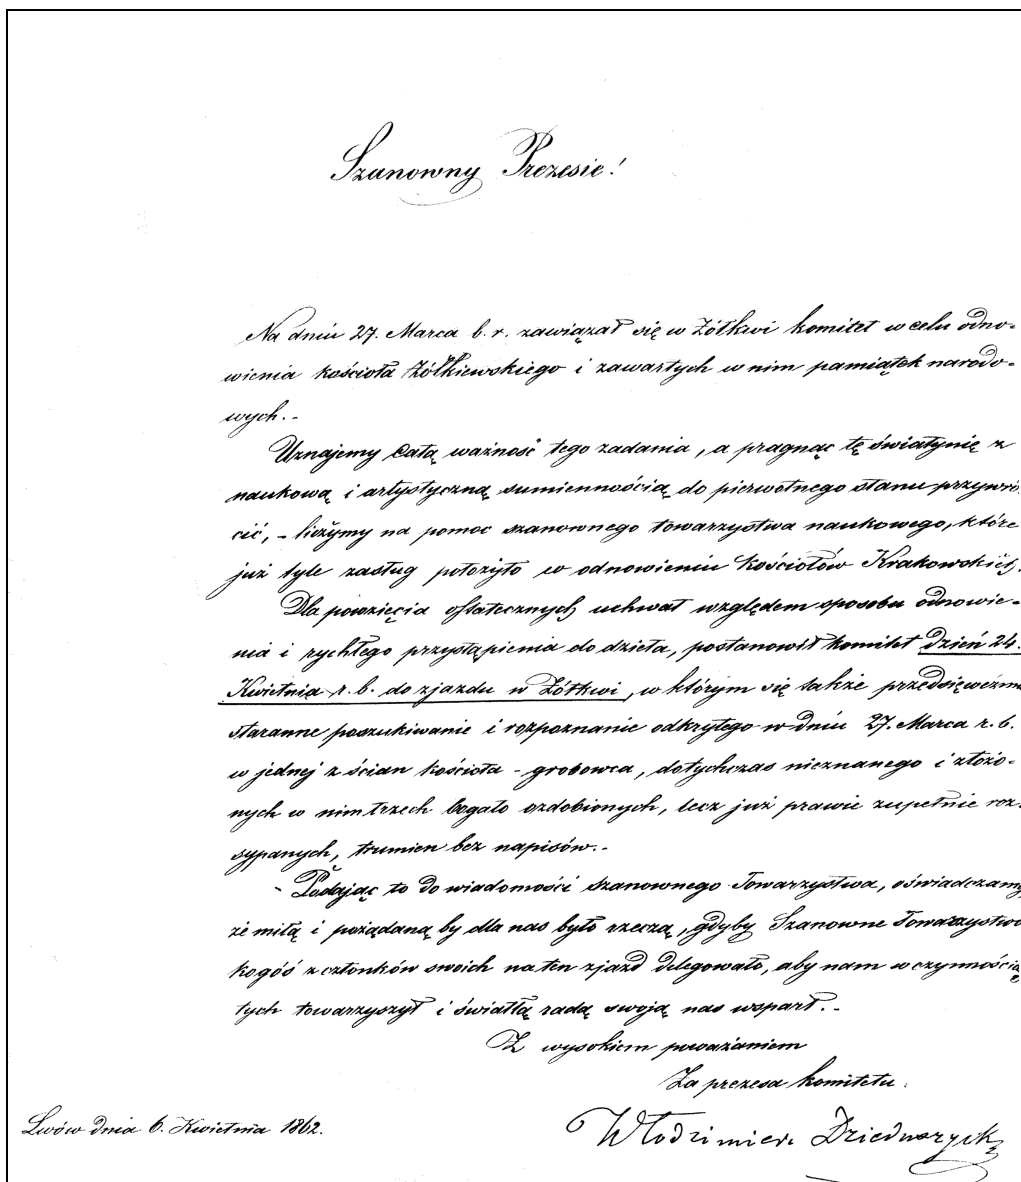 Szanowny Prezesie!
Na dniu 27. Marca b. r. zawiązał się w Żółkwi komitet w celu odno-
wienia kościoła Żółkiewskiego i zawartych w nim pamiątek narodo-
wych.-
Uznajemy całą ważność tego zadania, a pragnąc tę świątynię z
naukową i artystyczną sumiennością do pierwotnego stanu przywró
cić, - liczymy na pomoc szanownego towarzystwa naukowego, które
już tyle zasług położyło w odnowieniu kościołów Krakowskich.
Dla powzięcia ostatecznych uchwał względem sposobu odnowie-
nia i rychłego przystąpienia do dzieła, postanowił komitet dzień 24.
Kwietnia r. b. do zjazdu w Żółkwi, w którym się także przedsięweźmie
staranne poszukiwanie i rozpoznanie odkrytego w dniu 27. Marca r. b.
w jednej z ścian kościoła - grobowca, dotychczas nieznanego i złożo-
nych w nim trzech bogato ozdobionych, lecz już prawie zupełnie roz-
sypanych, trumien bez napisów.-
- Podając to do wiadomości szanownego Towarzystwa, oświadczamy
że miłą i pożądaną by dla nas było rzeczą, gdyby Szanowne Towarzystwo
kogoś z członków swoich na ten zjazd delegowało, aby nam w czynnością
tych towarzyszył i światłą radą swoją nas wsparł.-
Z wysokiem poważaniem
Za prezesa komitetu.
Lwów dnia 6. Kwietnia 1862.
Włodzimierz Dzieduszycki